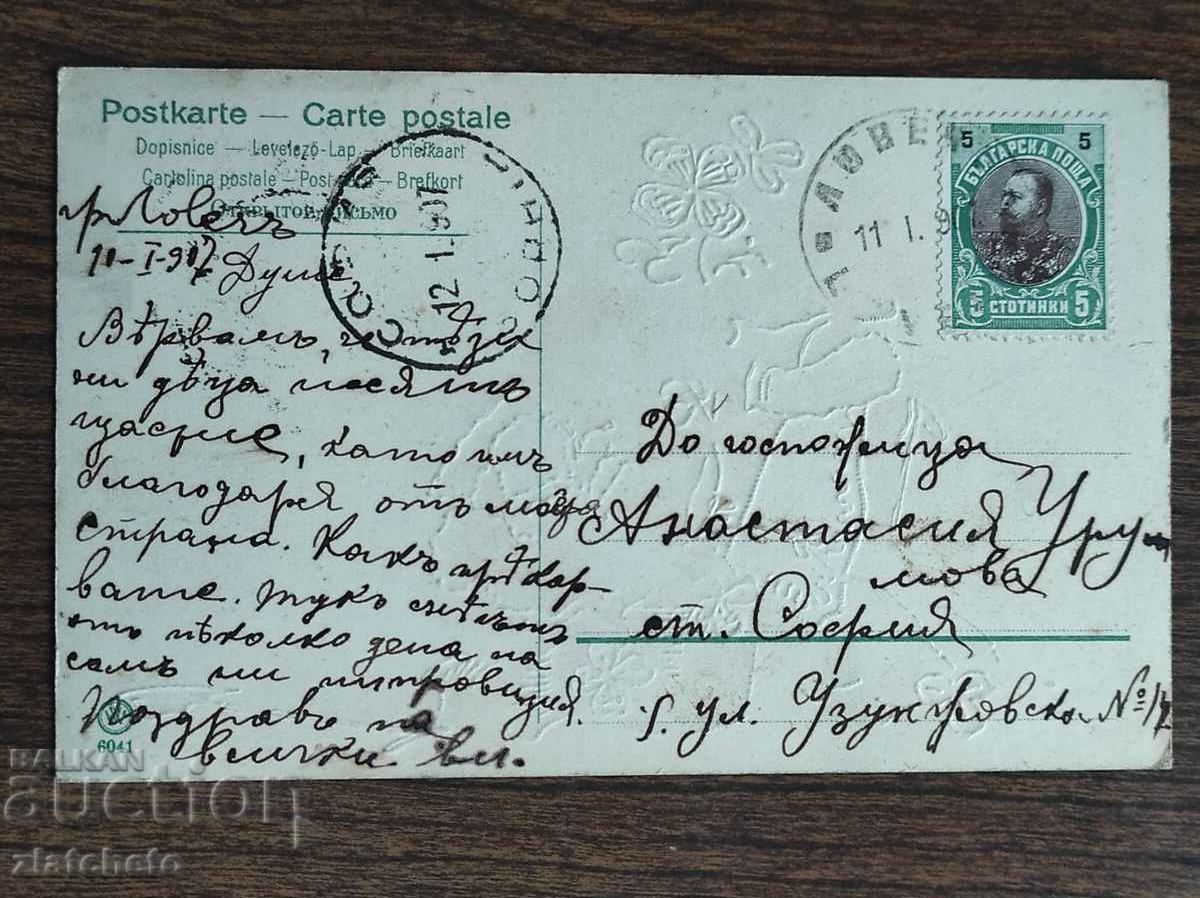 Postkarte — Carte postale
Dopisnice — Levelező-Lap — Briefkaart
Cartolina postale — Post card — Brefkort
Открытое письмо
гр. Ловечъ
10-I-907
Вѣрвамъ, че
ни дѣца носятъ
щастие, като имъ
благодаря отъ моя
страна. Какъ прѣкар-
вате. Тукъ снѣгътъ
отъ нѣколко дена на
самъ ни
Поздравъ на
всички.
6041
СОФИЯ
12.I.907
ЛОВЕЧ
11.I.9
5 5
БЪЛГАРСКА ПОЩА
5 СТОТИНКИ 5
До госпожица
Анастасия Уру-
мова
ст. София
ул. Узунджовска №
BALKAN
auction
zlatcheto